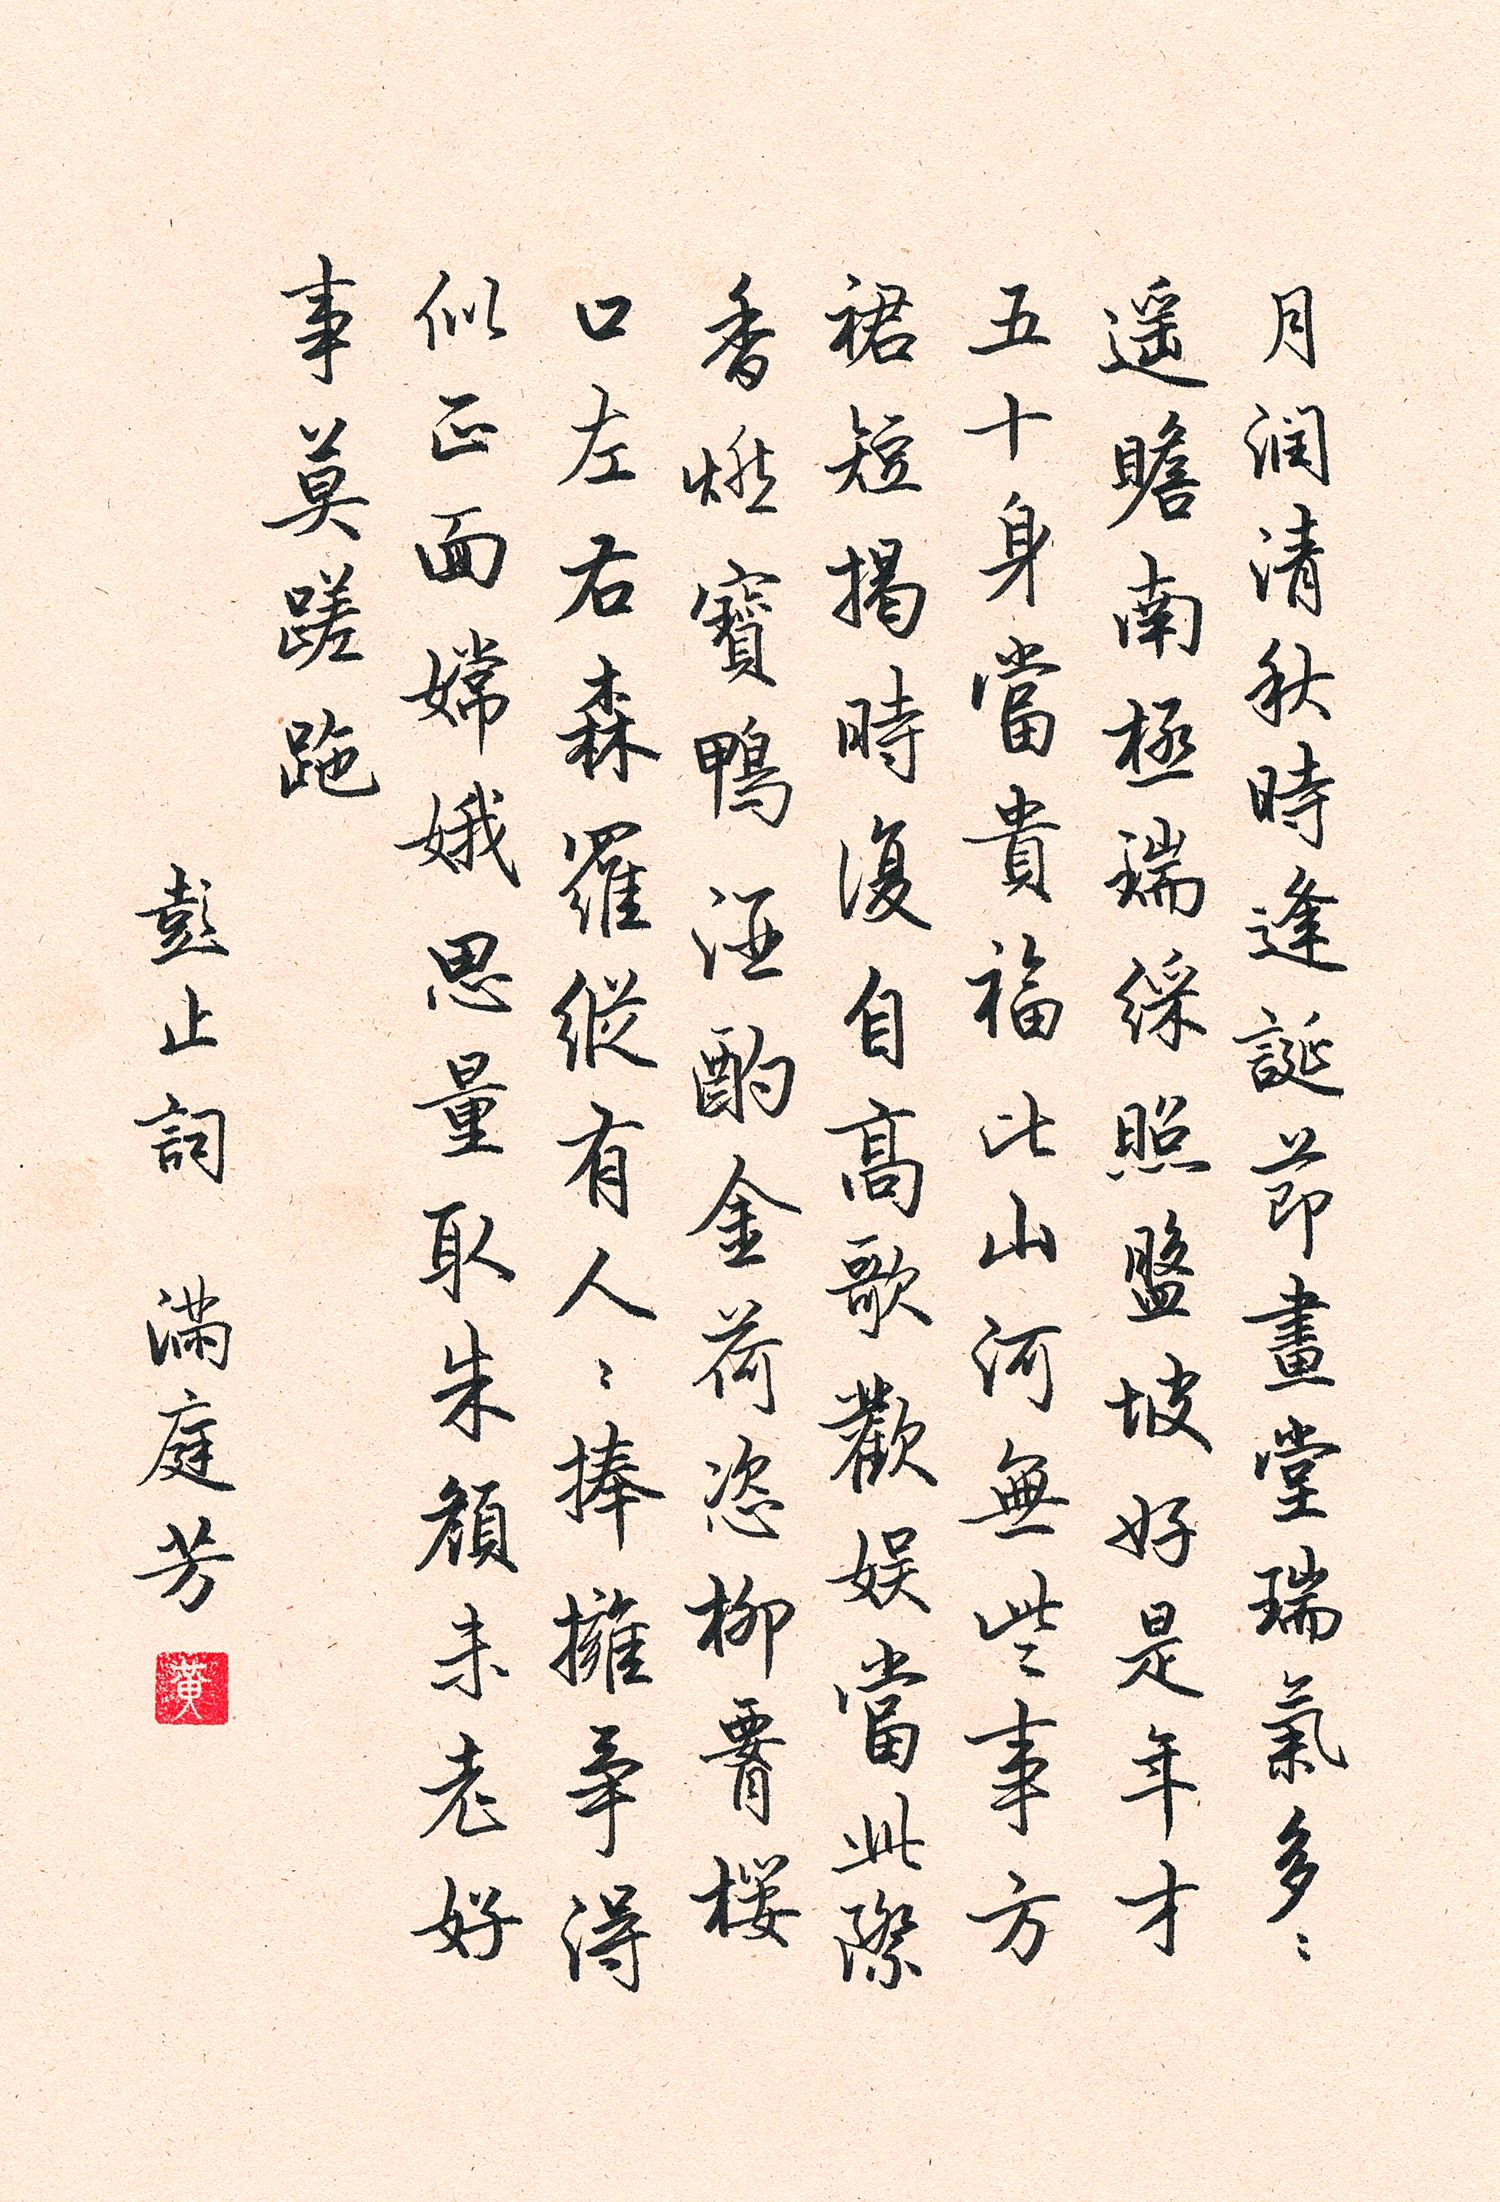 月润清秋時逢誕節畫堂瑞氣多〻
遥瞻南極瑞綵照盤坡好是年才
五十身當貴福比山河無些事方
裙短揭時復自高歌歡娱當此際
香燃寶鴨酒酌金荷恣柳腰櫻
口左右森羅縱有人〻捧擁争得
似正面嫦娥思量取朱顏未老好
事莫蹉跎
彭止詞 滿庭芳
黄